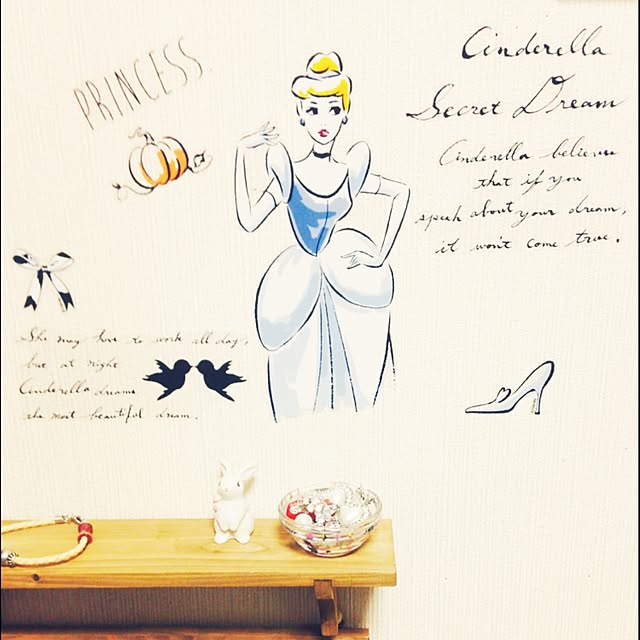 PRINCESS.
Cinderella
Secret Dream
Cinderella believes
that if you
speak about your dream,
it won't come true.
She may have to work all day,
but at night
Cinderella dreams
the most beautiful dream.